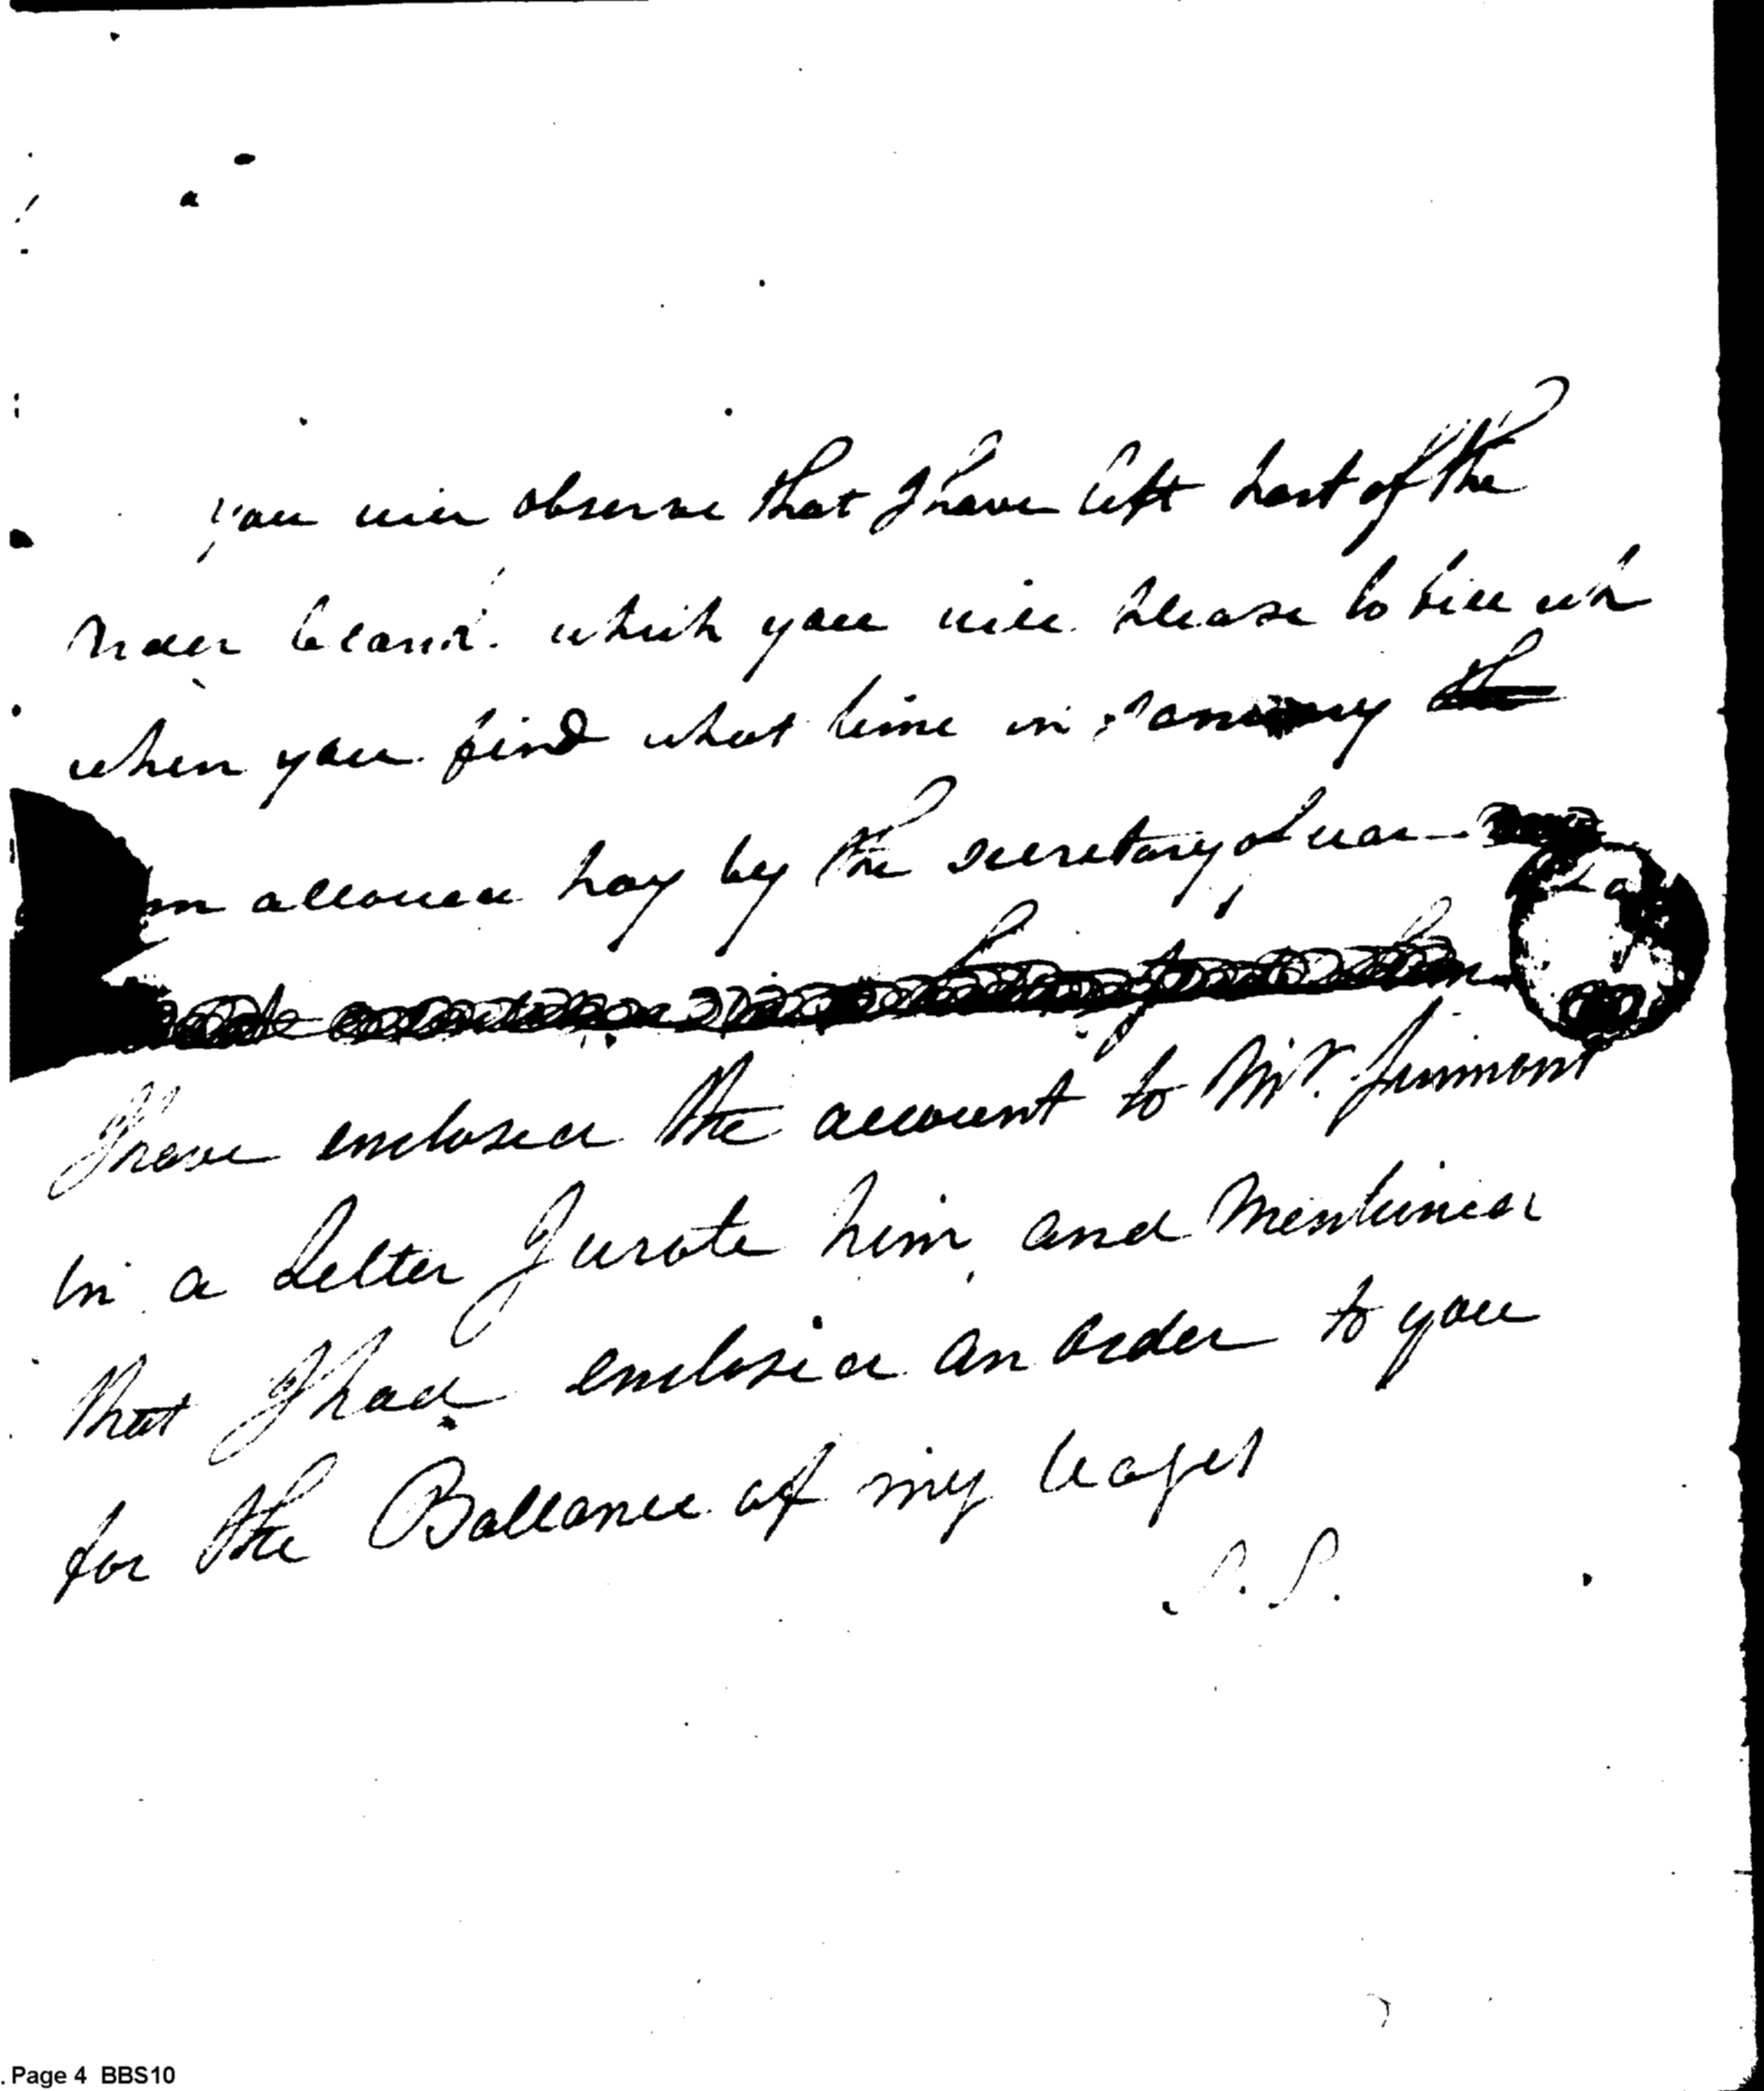 you will observe that I have left part of the
order blank. which you will please to fill up
when you find what time in January
am allowed pay by the secretary of war
I have enclosed the account to Mr.
in a Letter I wrote him, and Mentioned
that I had enclosed an order to you
for the Ballance of my wages
Page 4 BBS10